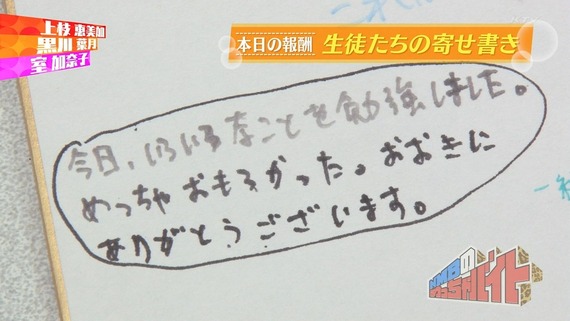 上枝 恵美加
黒川 葉月
室 加奈子
本日の報酬 生徒たちの寄せ書き
今日、いろいろなことを勉強しました。
めっちゃおもろかった。おおきに
ありがとうございます。
NMBの
めっちゃバイト